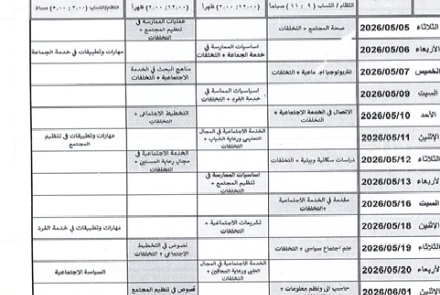 نظام / انتساب (٩ : ١١) صباحاً
(١٢,٠٠ : ٢,٠٠) ظهراً
(١٢,٠٠ : ٢,٠٠) ظهراً
نظام/انتساب (٣,٠٠ : ٥,٠٠) مساءً
الثلاثاء 2026/05/05
صحة المجتمع + التخلفات
عمليات الممارسة في
تنظيم المجتمع +
التخلفات
الأربعاء 2026/05/06
اساسيات الممارسة في
خدمة الجماعة + التخلفات
مهارات وتطبيقات في خدمة الجماعة
الخميس 2026/05/07
مناهج البحث في الخدمة
الاجتماعية + التخلفات
السبت 2026/05/09
اساسيات الممارسة في
خدمة الفرد + التخلفات
الأحد 2026/05/10
الاتصال في الخدمة الاجتماعية +
التخلفات
التخطيط الاجتماعي +
التخلفات
الإثنين 2026/05/11
الخدمة الاجتماعية في المجال
التعليمي ورعاية الشباب +
التخلفات
مهارات وتطبيقات في تنظيم
المجتمع
الثلاثاء 2026/05/12
دراسات سكانية وبيئية + التخلفات
الخدمة الاجتماعية في
مجال رعاية المسنين +
التخلفات
الأربعاء 2026/05/13
اساسيات الممارسة في
تنظيم المجتمع +
التخلفات
السبت 2026/05/16
مقدمة في الخدمة الاجتماعية
+التخلفات
الإثنين 2026/05/18
تشريعات الاجتماعية +
التخلفات
مهارات وتطبيقات في خدمة الفرد
الثلاثاء 2026/05/19
علم اجتماع سياسى + التخلفات
نصوص في التخطيط
الاجتماعي + التخلفات
الأربعاء 2026/05/20
الخدمة الاجتماعية في المجال
الطبي ورعاية المعاقين +
التخلفات
السياسة الاجتماعية
الإثنين 2026/06/01
حاسب الي ونظم معلومات +
نصوص في تنظيم المجتمع